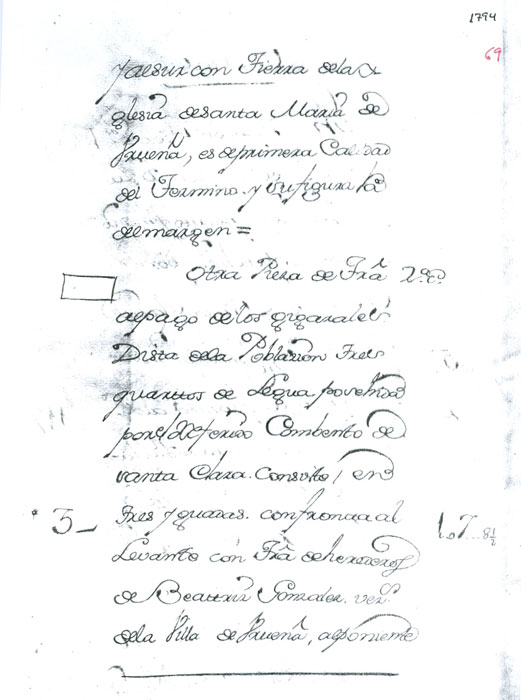 1794
69
y al sur con Tierra de la Y
glesia de Santa Maria de
Urueña, es de primera Calidad
del Termino. y su figura la
del margen =
Otra Pieza de Trâ
al pago de los gigarrales
Dista de la Poblazion Tres
quartos de Legua posehida
por el referido Combento de
santa Clara. Consiste / en
3_ Tres yguadas. confronta al 1.7.. 8½
Levante con Trâ de herederos
de Beatriz Gonzalez. vez.ª
de la Villa de Urueña, al poniente